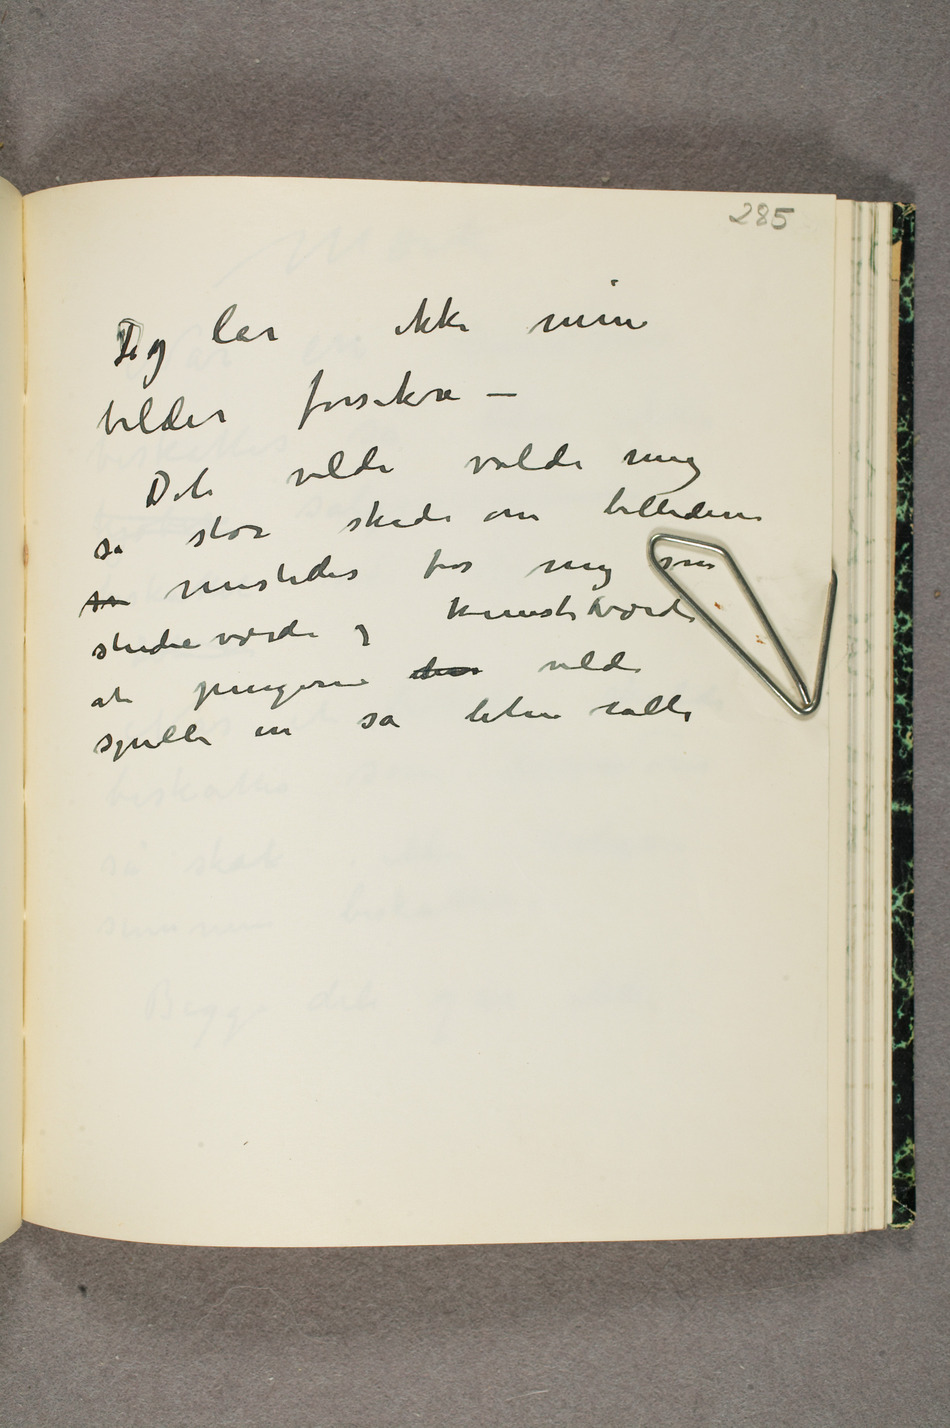 285
Jeg lar ikke mine
bilder forsikre –
Det vilde volde mig
så stor skade om billederne
mistedes for mig som
studieværdi og kunstværdi
at pengene vilde
spille en så liten rolle